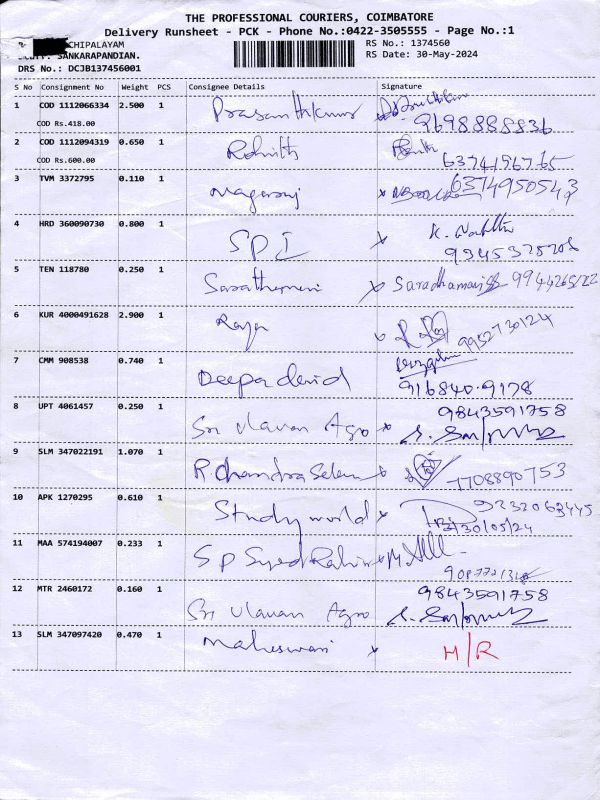 THE PROFESSIONAL COURIERS, COIMBATORE
Delivery Runsheet - PCK - Phone No.:0422-3505555 - Page No.:1
CHIPALAYAM
RS No.: 1374560
SANKARAPANDIAN.
RS Date: 30-May-2024
DRS No.: DCJB137456001
S No Consignment No Weight PCS Consignee Details Signature
1 COD 1112066334 2.500 1 Prasanthkumar
COD Rs.418.00 9698888836
2 COD 1112094319 0.650 1 Rohith
COD Rs.600.00 6374156765
3 TVM 3372795 0.110 1 Nagaraj 6374950543
4 HRD 360090730 0.800 1 SPI
5 TEN 118780 0.250 1 Saradhamani
6 KUR 4000491628 2.900 1 Raja 9952730124
7 CMM 908538 0.740 1 Deepa devid
916840.9178
8 UPT 4061457 0.250 1 Sri Vlavan Agro 9843591758
9 SLM 347022191 1.070 1 R Chandra Selen 7708890753
10 APK 1270295 0.610 1 Study world 9232063445
30/05/24
11 MAA 574194007 0.233 1 S P Syed Rahim
12 MTR 2460172 0.160 1 Sri Vlavan Agro 9843591758
13 SLM 347097420 0.470 1 Maheswari H/R